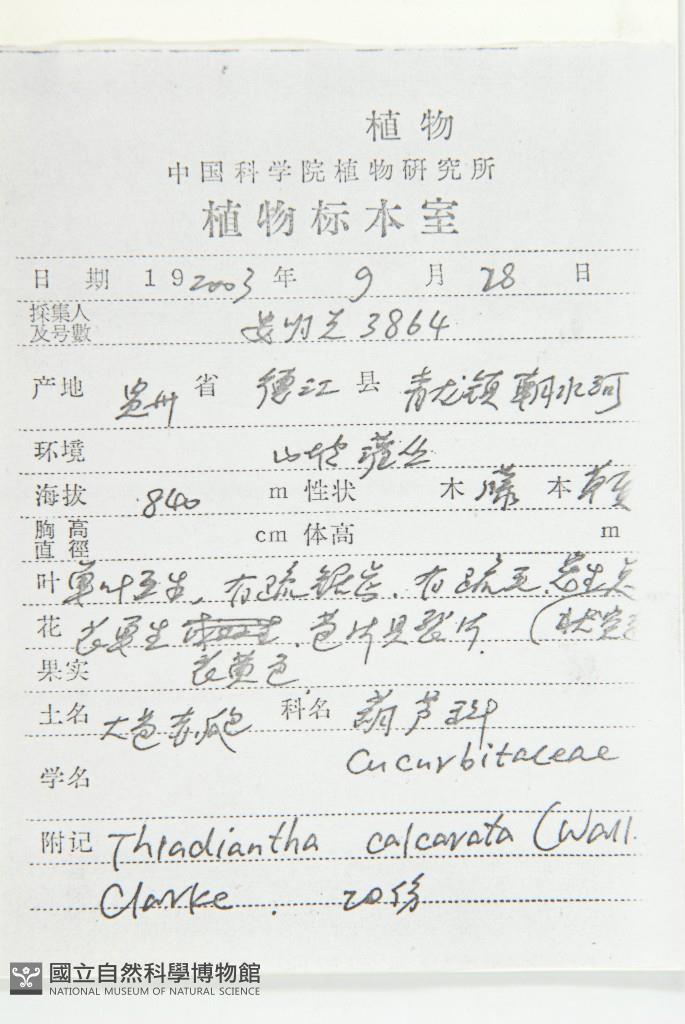 植物
中国科学院植物研究所
植物标本室
日期 19 2003 年 9 月 28 日
採集人
及号數 3864
产地 贵州 省 德江 县 青龙镇 朝水河
环境 山坡 灌丛
海拔 840 m 性状 木 藤 本
胸高
直徑 cm 体高 m
叶 单叶互生，有疏锯齿，有疏毛，
花 花单生 苞片具裂片，
果实 花黄色
土名 大苞赤瓟 科名 葫芦科
学名 Cucurbitaceae
附记 Thladiantha calcarata (Wall.
Clarke. 20份
國立自然科學博物館
NATIONAL MUSEUM OF NATURAL SCIENCE